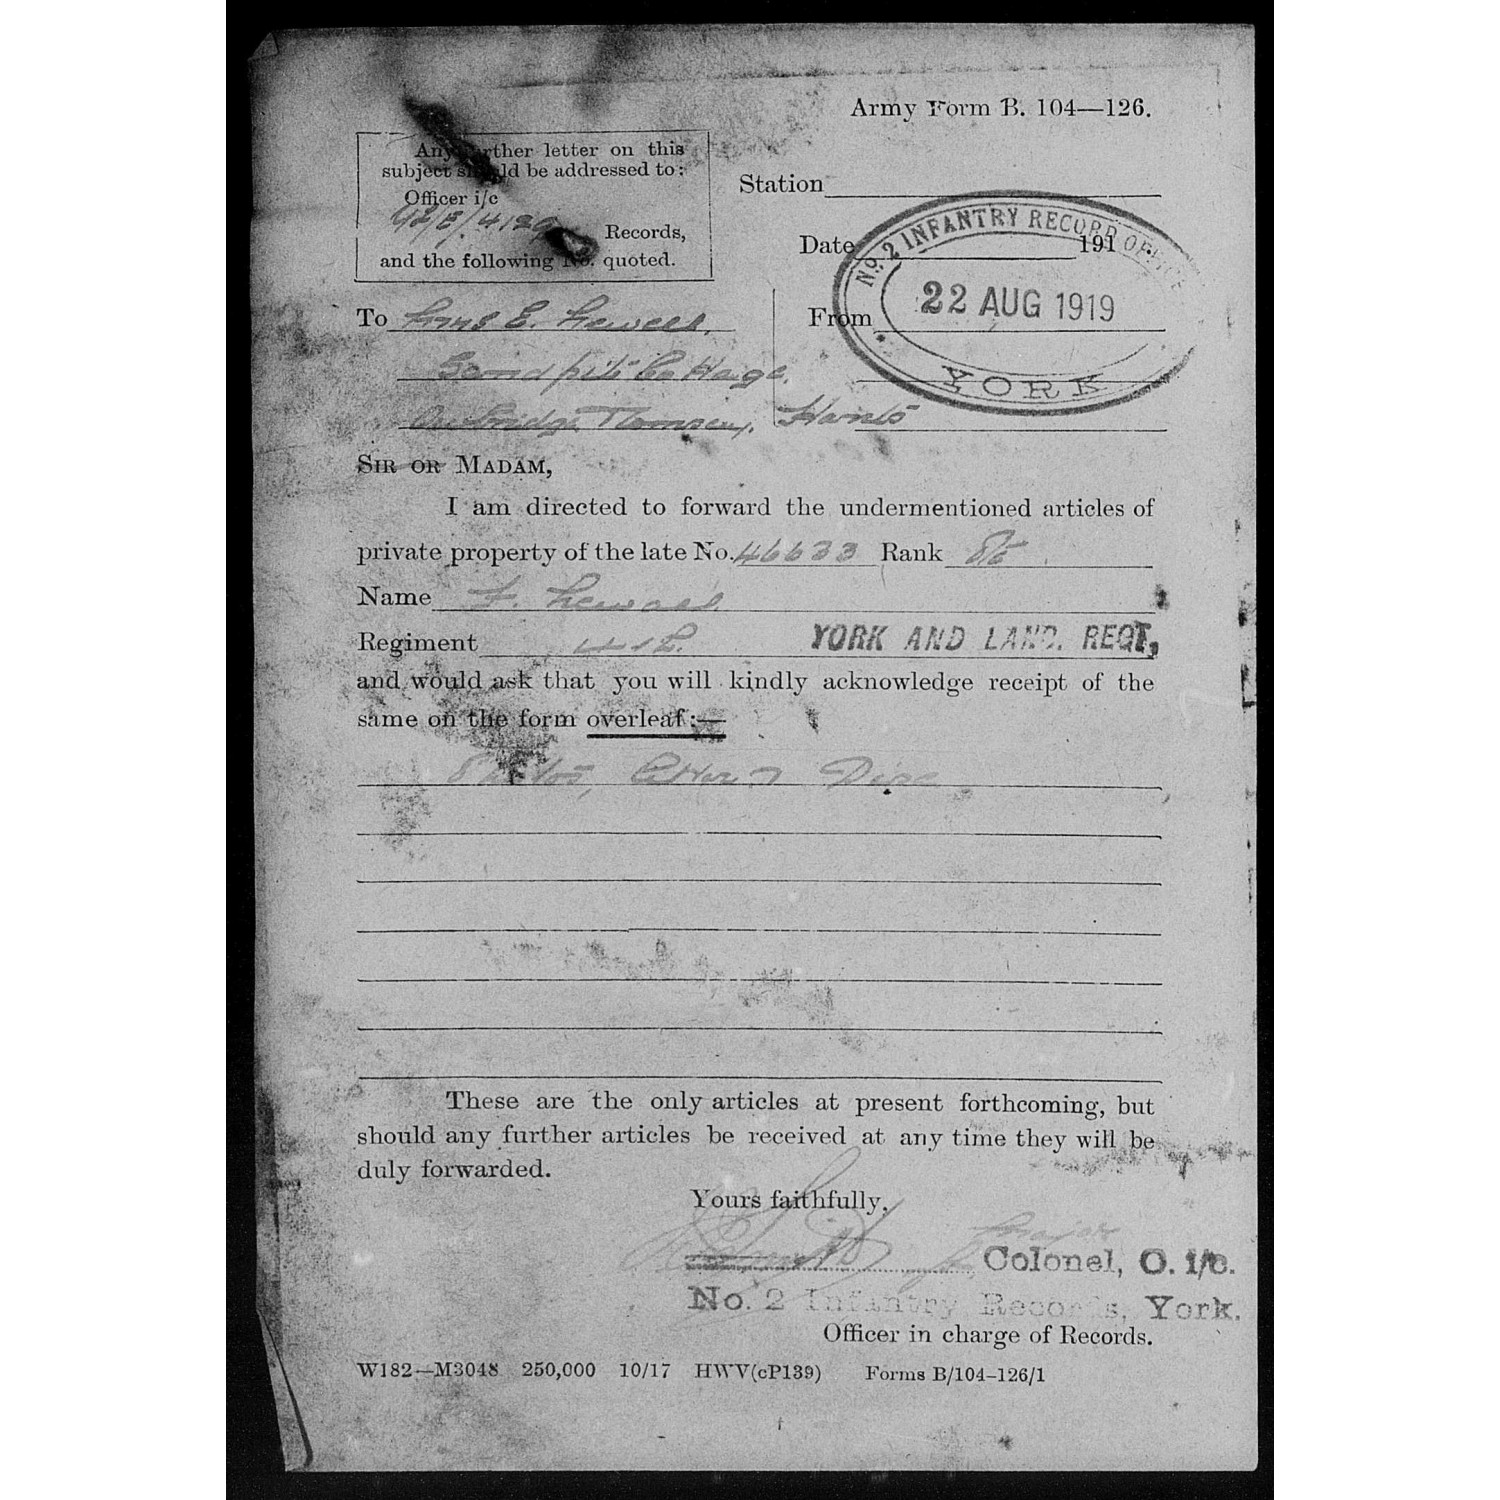 Army Form B. 104—126.
Any further letter on this
subject should be addressed to:
Officer i/c
Records,
and the following No. quoted.
Station
Date 191
No. 2 INFANTRY RECORD OFFICE
22 AUG 1919
YORK
To Mrs E.
From
Sandpit Cottage,
Awbridge, Romsey, Hants
SIR OR MADAM,
I am directed to forward the undermentioned articles of
private property of the late No. 46633 Rank Pte
Name F.
Regiment YORK AND LANC. REGT,
and would ask that you will kindly acknowledge receipt of the
same on the form overleaf:—
Photos, Disc
These are the only articles at present forthcoming, but
should any further articles be received at any time they will be
duly forwarded.
Yours faithfully,
Major
Colonel, O. i/c.
No. 2 Infantry Records, York.
Officer in charge of Records.
W182—M3048 250,000 10/17 HWV(cP139) Forms B/104–126/1